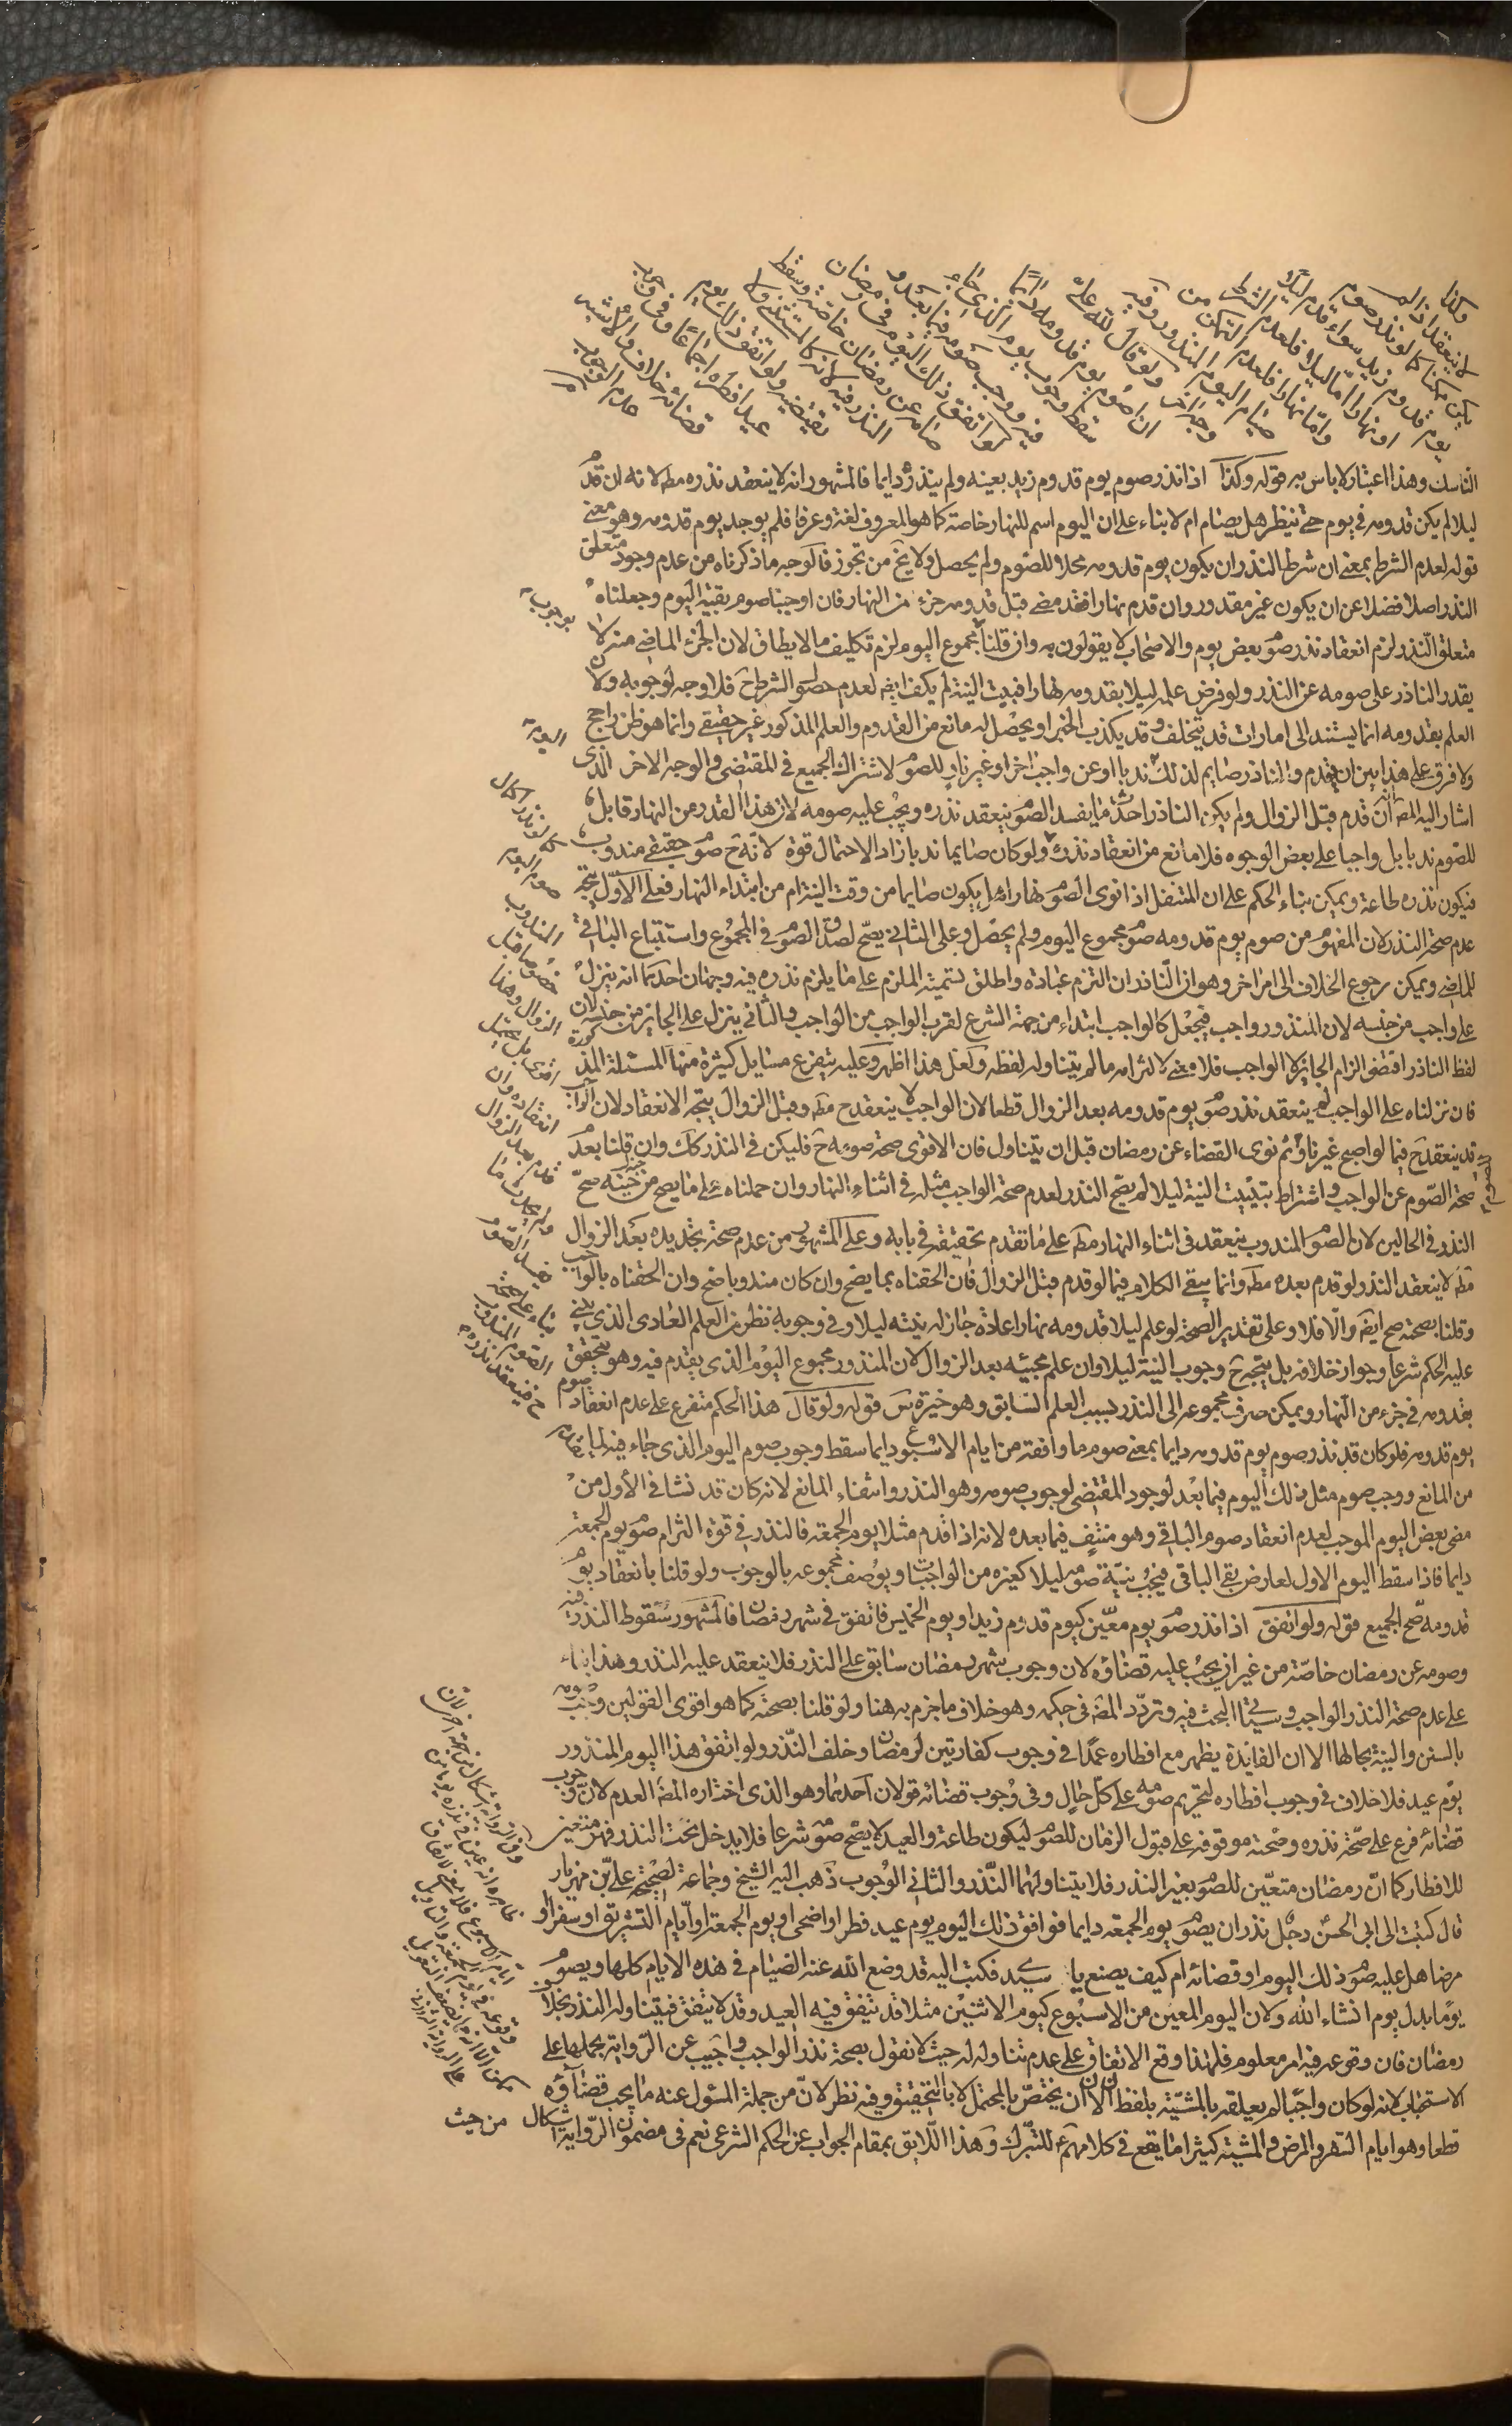 وكذا
لا ينعقد اذا لم
يكن ممكنا كما لو نذر صوم
يوم قدوم زيد سواء قدم ليلا
او نهارا اما ليلا فلعدم الشرط
واما نهارا فلعدم التمكن من
صيام اليوم المنذور وفيه
وجه اخر ولو قال لله علي
ان اصوم يوم قدومه دائما
سقط وجوب يوم الذي جاء
فيه ووجب صومه فيما بعد و
لو اتفق ذلك اليوم في رمضان
صامه عن رمضان خاصة وسقط
النذر فيه لانه كالمستثنى ولا
يقضيه ولو اتفق ذلك يوم
عيد افطره اجماعا وفي وجوب
قضائه خلاف والاشبه
عدم الوجوب
الناسك وهذا اعتبار لا باس به قوله وكذا اذا نذر صوم يوم قدوم زيد بعينه ولم ينذره دايما فالمشهور انه لا ينعقد نذره مطه لانه ان قدم
ليلا لم يكن قدومه في يوم حتى ينظر هل يصام ام لا بناء على ان اليوم اسم للنهار خاصة كما هو المعروف لغة وعرفا فلم يوجد يوم قدومه وهو معنى
قوله لعدم الشرط بمعنى ان شرط النذر ان يكون يوم قدومه محلا للصوم ولم يحصل ولا يخ من تجوز فالوجه ما ذكرناه من عدم وجود متعلق
النذر اصلا فضلا عن ان يكون غير مقدور وان قدم نهارا فقد مضى قبل قدومه جزء من النهار فان اوجبنا صوم بقية اليوم وجعلناه
متعلق النذر لزم انعقاد نذر صوم بعض يوم والاصحاب لا يقولون به وان قلنا بوجوب مجموع اليوم لزم تكليف ما لا يطاق لان الجزء الماضي منه لا
يقدر الناذر على صومه عن النذر ولو فرض علمه ليلا بقدومه نهارا فبيت النية لم يكف ايضا لعدم حصول الشرط ح فلا وجه لوجوبه ولان
العلم بقدومه انما يستند الى امارات قد تتخلف وقد يكذب الخبر او يحصل له مانع من القدوم والعلم المذكور غير حقيقي وانما هو ظن راجح
ولا فرق على هذا بين ان يقدم والناذر صايم لذلك اليوم ندبا او عن واجب اخر او غير ناو للصوم لاشتراك الجميع في المقتضى والوجه الاخر الذي
اشار اليه المص ان قدم قبل الزوال ولم يكن الناذر احدث ما يفسد الصوم ينعقد نذره ويجب عليه صومه لان هذا القدر من النهار قابل
للصوم ندبا بل واجبا على بعض الوجوه فلا مانع من انعقاد نذره ولو كان صايما ندبا زاد الاحتمال قوة لانه ح صوم حقيقي مندوب
فيكون نذره طاعة ويمكن بناء الحكم على ان المتنفل اذا نوى الصوم نهارا هل يكون صايما من وقت النية ام من ابتداء النهار فعلى الاول يتجه
عدم صحة النذر لان المفهوم من صوم يوم قدومه صوم مجموع اليوم ولم يحصل وعلى الثاني يصح لصدق الصوم في المجموع واستتباع الباقي
للماضي ويمكن رجوع الخلاف الى امر اخر وهو ان الناذر ان التزم عبادة واطلق تسمية الملزم على ما يلزم نذره فيه وجهان احدهما انه ينزل
على واجب من جنسه لان المنذور واجب فيجعل كالواجب ابتداء من جهة الشرع لقرب الواجب من الواجب والثاني ينزل على الجايز من جنسه لان
لفظ الناذر اقتضى الزام الجايز لا الواجب فلا معنى لالتزامه ما لم يتناوله لفظه ولعل هذا اظهر وعليه يتفرع مسايل كثيرة منها المسئلة المذكورة
فان نزلناه على الواجب لم ينعقد نذر صوم يوم قدومه بعد الزوال قطعا لان الواجب لا ينعقد ح مطه وقبل الزوال يتجه الانعقاد لان الواجب
قد ينعقد ح فيما لو اصبح غير ناو ثم نوى القضاء عن رمضان قبل ان يتناول فان الاقوى صحة صومه ح فليكن في النذر كك وان قلنا بعدم
صحة الصوم عن الواجب واشتراط تبييت النية ليلا لم يصح النذر لعدم صحة الواجب مثله في اثناء النهار وان حملناه على ما يصح من جنسه صح
النذر في الحالين لان الصوم المندوب ينعقد في اثناء النهار مطه على ما تقدم تحقيقه في بابه وعلى المشهور من عدم صحة تجديده بعد الزوال
مطه لا ينعقد النذر لو قدم بعده مطه وانما يبقى الكلام فيما لو قدم قبل الزوال فان الحقناه بما يصح وان كان مندوبا صح وان الحقناه بالواجب
وقلنا بصحته صح ايضا والا فلا وعلى تقدير الصحة لو علم ليلا قدومه نهارا عادة جاز له نيته ليلا وفي وجوبه نظر من العلم العادي الذي يبنى
عليه الحكم شرعا وجواز خلافه بل يتجه ح وجوب النية ليلا وان علم مجيئه بعد الزوال لان المنذور مجموع اليوم الذي يقدم فيه وهو يتحقق
بقدومه في جزء من النهار ويمكن صرف مجموعه الى النذر بسبب العلم السابق وهو خيرة س قوله ولو قال هذا الحكم متفرع على عدم انعقاد صوم
يوم قدومه فلو كان قد نذر صوم يوم قدومه دايما بمعنى صوم ما وافقه من ايام الاسبوع دايما سقط وجوب صوم اليوم الذي جاء فيه لما تقدم
من المانع ووجب صوم مثل ذلك اليوم فيما بعد لوجود المقتضى لوجوب صومه وهو النذر وانتفاء المانع لانه كان قد نشا في الاول من
مضي بعض اليوم الموجب لعدم انعقاد صوم الباقي وهو منتف فيما بعده لانه اذا قدم مثلا يوم الجمعة فالنذر في قوة التزام صوم يوم الجمعة
دايما فاذا سقط اليوم الاول لعارض بقي الباقي فيجب نية صومه ليلا كغيره من الواجبات ويوصف مجموعه بالوجوب ولو قلنا بانعقاد يوم
قدومه صح الجميع قوله ولو اتفق اذا نذر صوم يوم معين كيوم قدوم زيد او يوم الخميس فاتفق في شهر رمضان فالمشهور سقوط النذر فيه
وصومه عن رمضان خاصة من غير ان يجب عليه قضاؤه لان وجوب شهر رمضان سابق على النذر فلا ينعقد عليه النذر وهذا بناء
على عدم صحة النذر الواجب وسياتي البحث فيه وتردد المص في حكمه وهو خلاف ما جزم به هنا ولو قلنا بصحته كما هو اقوى القولين وجب صومه
بالسنن والنية بحالها الا ان الفايدة يظهر مع افطاره عمدا في وجوب كفارتين لرمضان وخلف النذر ولو اتفق هذا اليوم المنذور
يوم عيد فلا خلاف في وجوب افطاره لتحريم صومه على كل حال وفي وجوب قضائه قولان احدهما وهو الذي اختاره المص العدم لان وجوب
قضائه فرع على صحة نذره وصحته موقوفة على قبول الزمان للصوم ليكون طاعة والعيد لا يصح صومه شرعا فلا يدخل تحت النذر فهو متعين
للافطار كما ان رمضان متعين للصوم بغير النذر فلا يتناولهما النذر والثاني الوجوب ذهب اليه الشيخ وجماعة لصحيحة علي بن مهزيار
قال كتبت الى ابي الحسن رجل نذر ان يصوم يوم الجمعة دايما فوافق ذلك اليوم يوم عيد فطر او اضحى او يوم الجمعة او ايام التشريق او سفر او
مرض هل عليه صوم ذلك اليوم او قضائه ام كيف يصنع يا سيدي فكتب اليه قد وضع الله عنه الصيام في هذه الايام كلها ويصوم
يوما بدل يوم انشاء الله ولان اليوم المعين من الاسبوع كيوم الاثنين مثلا قد يتفق فيه العيد وقد لا يتفق فيتناوله النذر بخلاف
رمضان فان وقوعه فيه امر معلوم فلهذا وقع الاتفاق على عدم تناوله له حيث لا نقول بصحة نذر الواجب واجيب عن الرواية بحملها على
الاستحباب لانه لو كان واجبا لم يعلقه بالمشية بلفظ ان لان ان يختص بالمحتمل لا بالتحقيق وفيه نظر لان من جملة المسئول عنه ما يجب قضاؤه
قطعا وهو ايام السفر والمرض والمشية كثيرا ما يقع في كلامهم للتبرك وهذا اللايق بمقام الجواب عن الحكم الشرعي نعم في مضمون الرواية اشكال من حيث